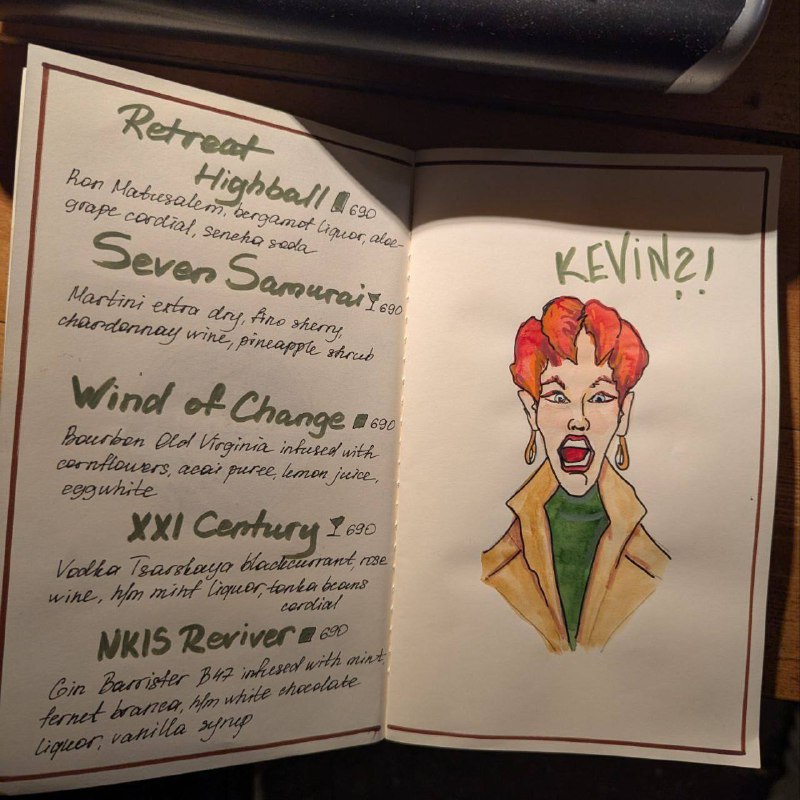 Retreat
Highball 690
Ron Matusalem, bergamot liquor, aloe-
grape cordial, sencha soda
Seven Samurai 690
Martini extra dry, fino sherry,
chardonnay wine, pineapple shrub
Wind of Change 690
Bourbon Old Virginia infused with
cornflowers, acai puree, lemon juice,
eggwhite
XXI Century 690
Vodka Tsarskaya blackcurrant, rose
wine, h/m mint liquor, tonka beans
cordial
NKIS Reviver 690
Gin Barrister B47 infused with mint
fernet branca, h/m white chocolate
liquor, vanilla syrup
KEVIN?!